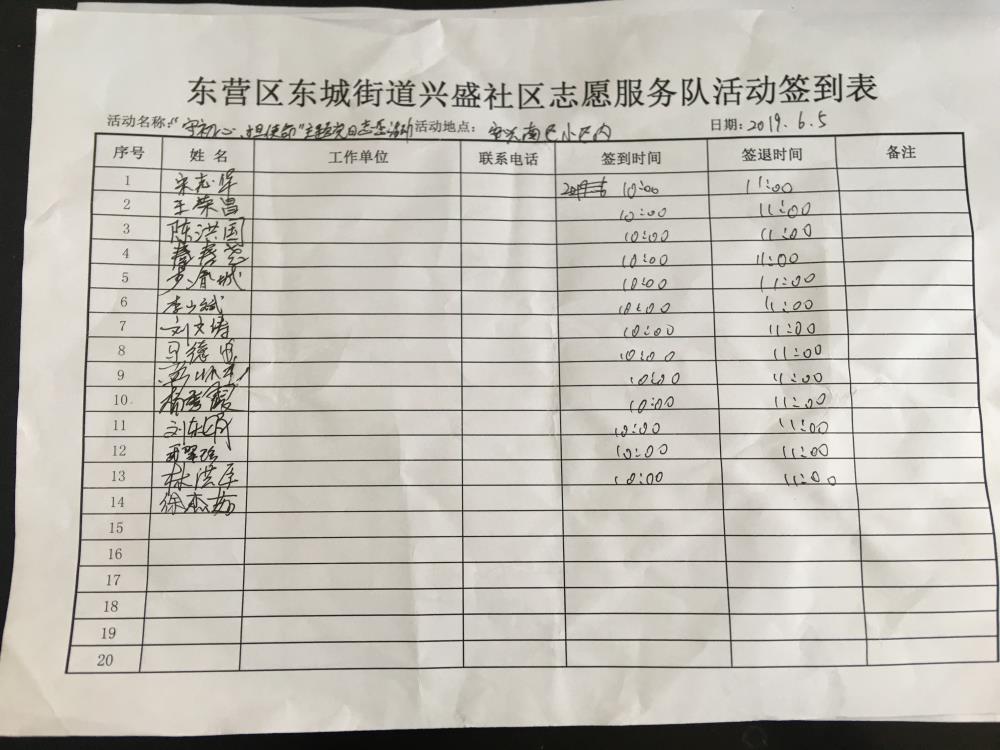 东营区东城街道兴盛社区志愿服务队活动签到表
活动名称:“守初心、担使命”主题党日志愿活动 活动地点: 安兴南区小区内 日期: 2019.6.5
序号 姓名 工作单位 联系电话 签到时间 签退时间 备注
1 宋志军 10:00 11:00
2 王荣昌 10:00 11:00
3 陈洪国 10:00 11:00
4 10:00 11:00
5 10:00 11:00
6 李少斌 10:00 11:00
7 刘文涛 10:00 11:00
8 马德忠 10:00 11:00
9 10:00 11:00
10 杨秀霞 10:00 11:00
11 刘东明 10:00 11:00
12 10:00 11:00
13 林洪军 10:00 11:00
14 徐杰茹
15
16
17
18
19
20